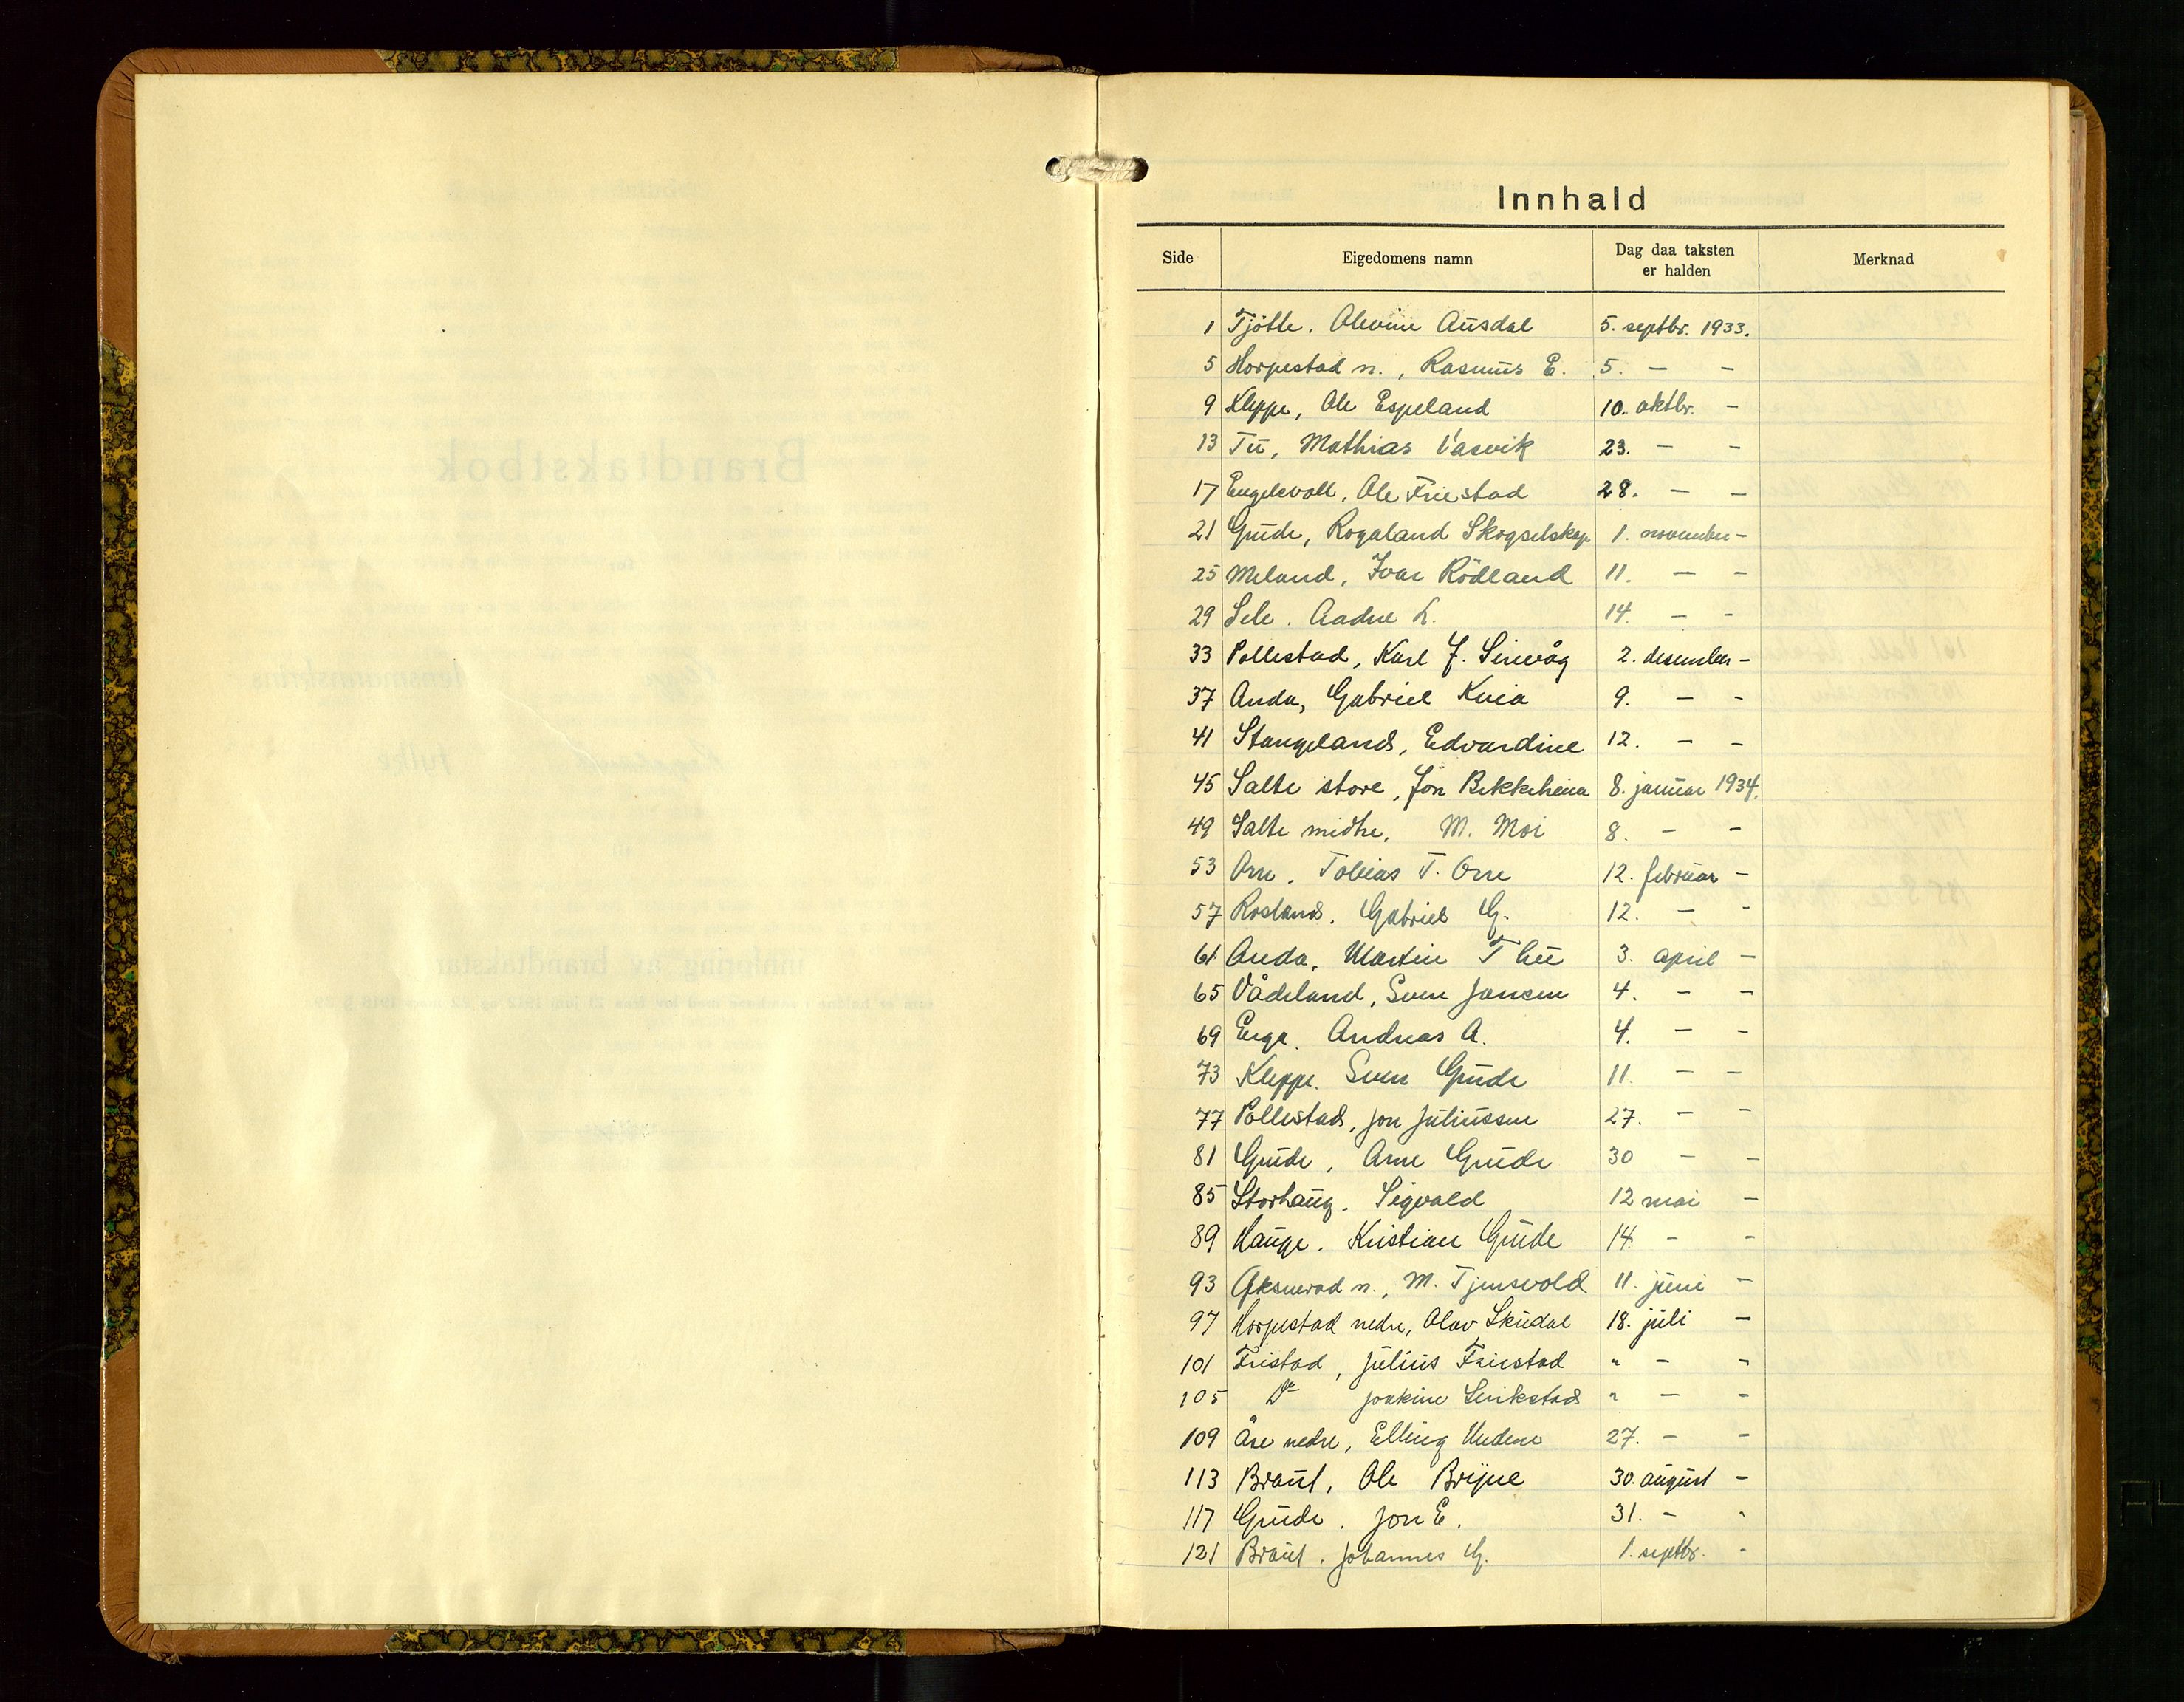 Innhald
Side Eigedomens namn Dag daa taksten er halden Merknad
1 Tjötte, Olevine Ausdal 5. septbr. 1933.
5 Horpestad n., Rasmus E. 5. - -
9 Kleppe, Ole Espeland 10. oktbr. -
13 Tu, Mathias Vasvik 23. - -
17 Engelsvoll, Ole Friestad 28. - -
21 Grude, Rogaland Skogselskap 1. november -
25 Meland, Ivar Rödland 11. - -
29 Sele, Aadne L. 14. - -
33 Pollestad, Karl J. Sirevåg 2. desember -
37 Anda, Gabriel Kvia 9. - -
41 Stangeland, Edvardine 12. - -
45 Salte store, Jon Bekkeheien 8. januar 1934.
49 Salte midtre, M. Moi 8. - -
53 Orre, Tobias T. Orre 12. februar -
57 Rosland, Gabriel G. 12. - -
61 Anda, Martin Thu 3. april -
65 Vådeland, Sven Jansen 4. - -
69 Erga, Andreas A. 4. - -
73 Kleppe, Sven Grude 11. - -
77 Pollestad, Jon Juliussen 27. - -
81 Grude, Arne Grude 30 - -
85 Storhaug, Sigvald 12 mai -
89 Hauge, Kristian Grude 14. - -
93 Öksnevad n., M. Tjensvold 11. juni -
97 Horpestad nedre, Olav Skudal 18. juli -
101 Fristad, Julius Friestad " - -
105 Do Joakim Serikstad " - -
109 Åse nedre, Elling Undem 27. - -
113 Braut, Ole Bryne 30. august -
117 Grude, Jon E. 31. - -
121 Braut, Johannes G. 1. septbr. -